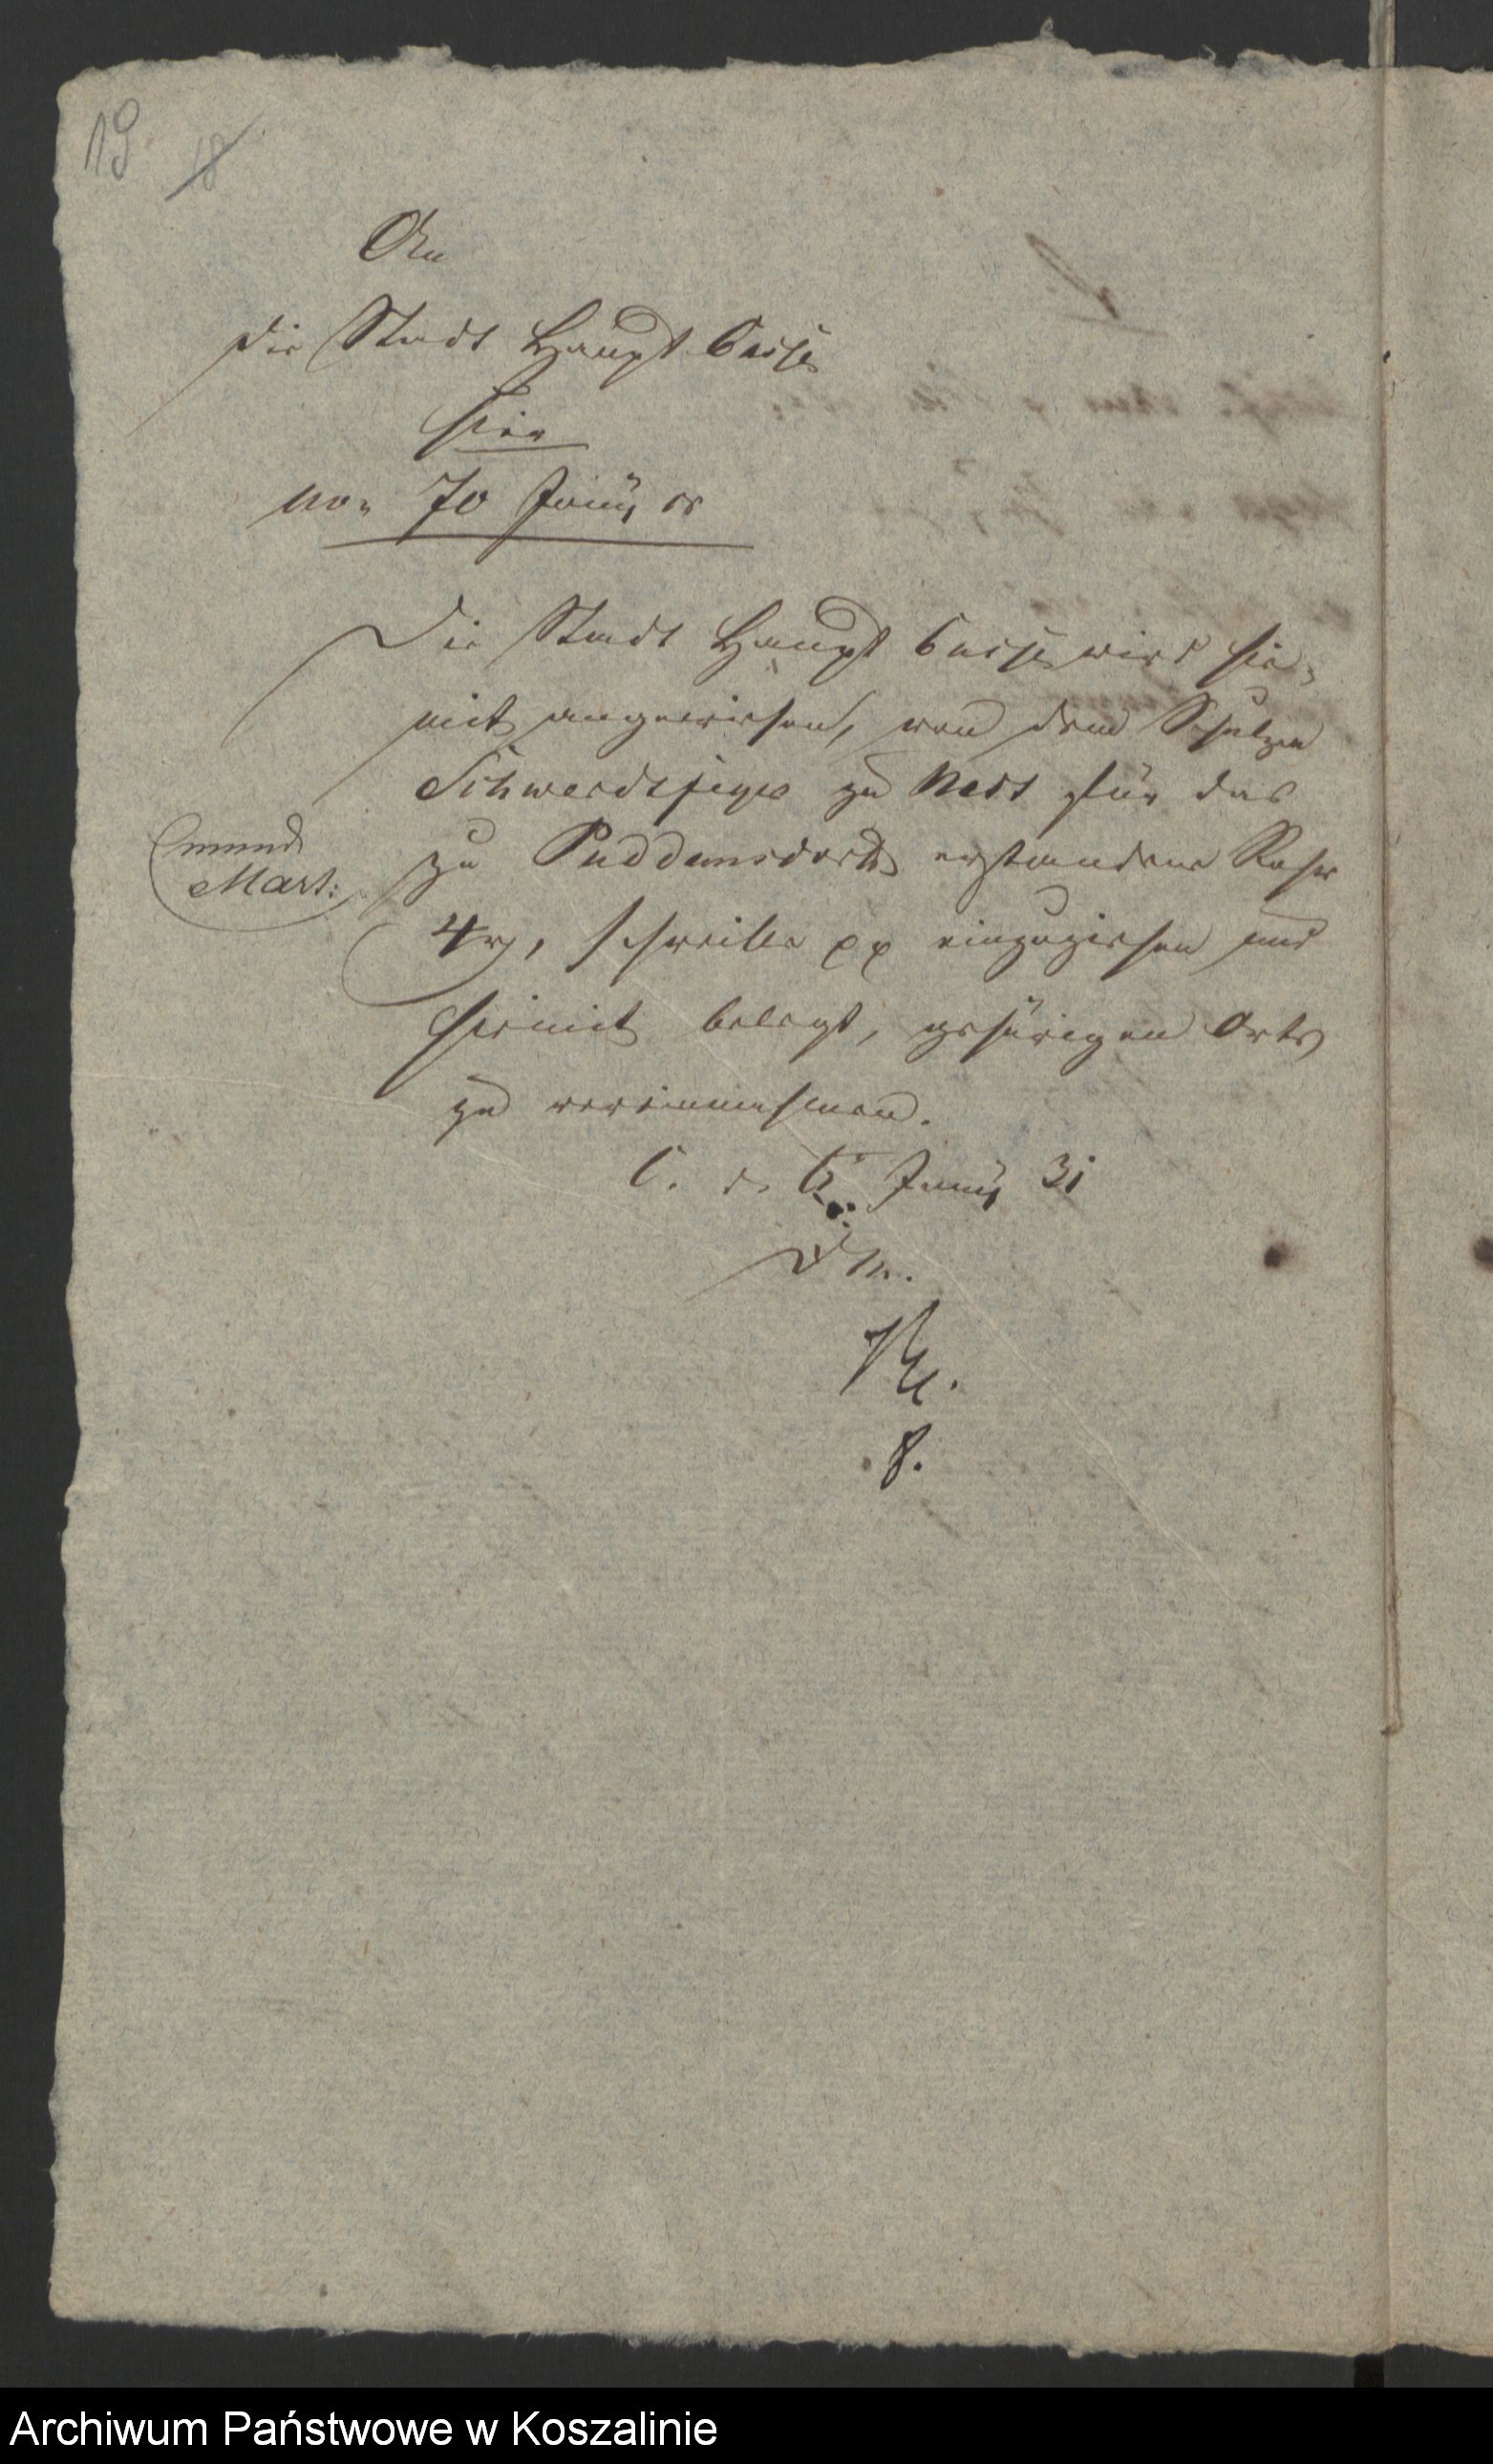 19 18
An
die Stadt Haupt Casse
hier
no. 70 Junij cr
Die Stadt Haupt Casse wird hie-
mit angewiesen, von dem Schulzen
Schwerdtfeger zu Nest für das
zu Puddemsdorff erstandene Rohr
4 rt, schreibe pp einzuziehen und
hiermit belegt, gehörigen Orts
zu vereinnahmen.
mund
Mart:
C. d. 6 Junij 31
D M.
8.
Archiwum Państwowe w Koszalinie